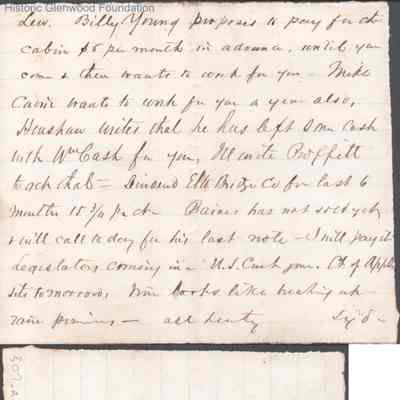 Historic Glenwood Foundation
Lew. Billy Young proposes to pay for the
cabin $5 per month in advance, until you
come & then wants to work for you — Mike
wants to work for you a year also,
Henshaw writes that he has left some Cash
with Wm Cash for you, Ill write Proffitt
to ack that — Dividend Elk Bridge Co for last 6
months 15 3/4 pr ct — Baines has not sold yet
& will call to day for his last note — I will pay it
Legislators coming in — U.S. Court Ct. of Appls
sits tomorrow, looks like
— all
307.2